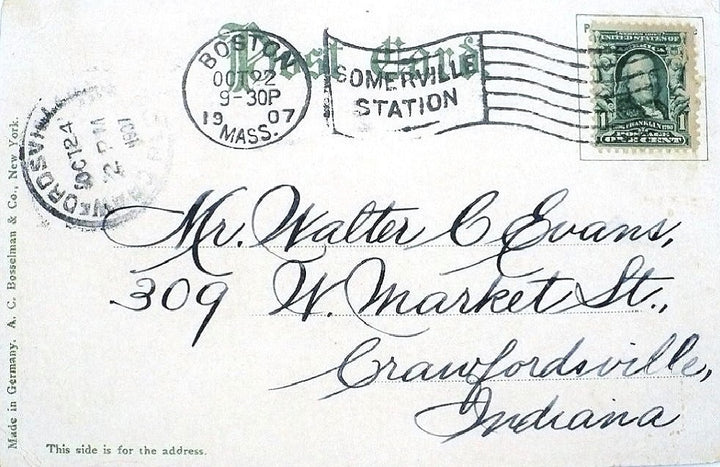 Post Card
BOSTON
OCT 22
9-30P
1907
MASS.
SOMERVILLE
STATION
UNITED STATES OF
FRANKLIN
POSTAGE
1 ONE CENT 1
CRAWFORDSVILLE
OCT 24
2 PM
1907
Mr. Walter C Evans,
309 W. Market St.,
Crawfordsville,
Indiana
Made in Germany. A. C. Bosselman & Co., New York.
This side is for the address.